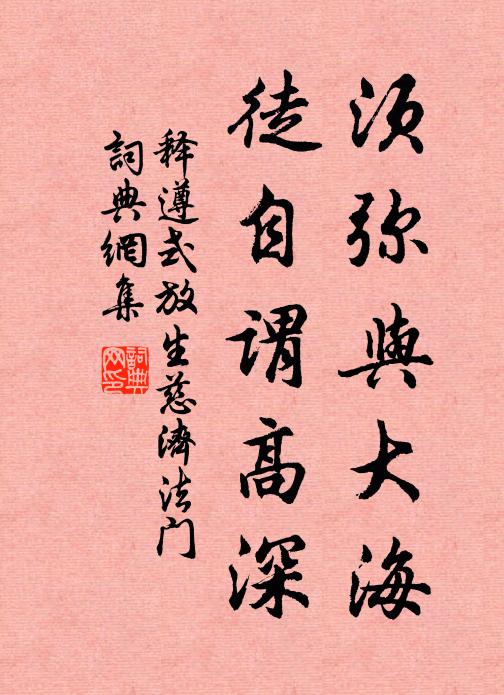 须弥與大海
徒自谓高深
释遵式放生慈濟法门
詞典網集
詞典
网印